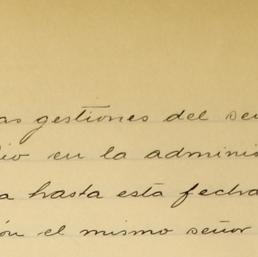 as gestiones del se
io en la adminis
a hasta esta fecha
ón el mismo señor